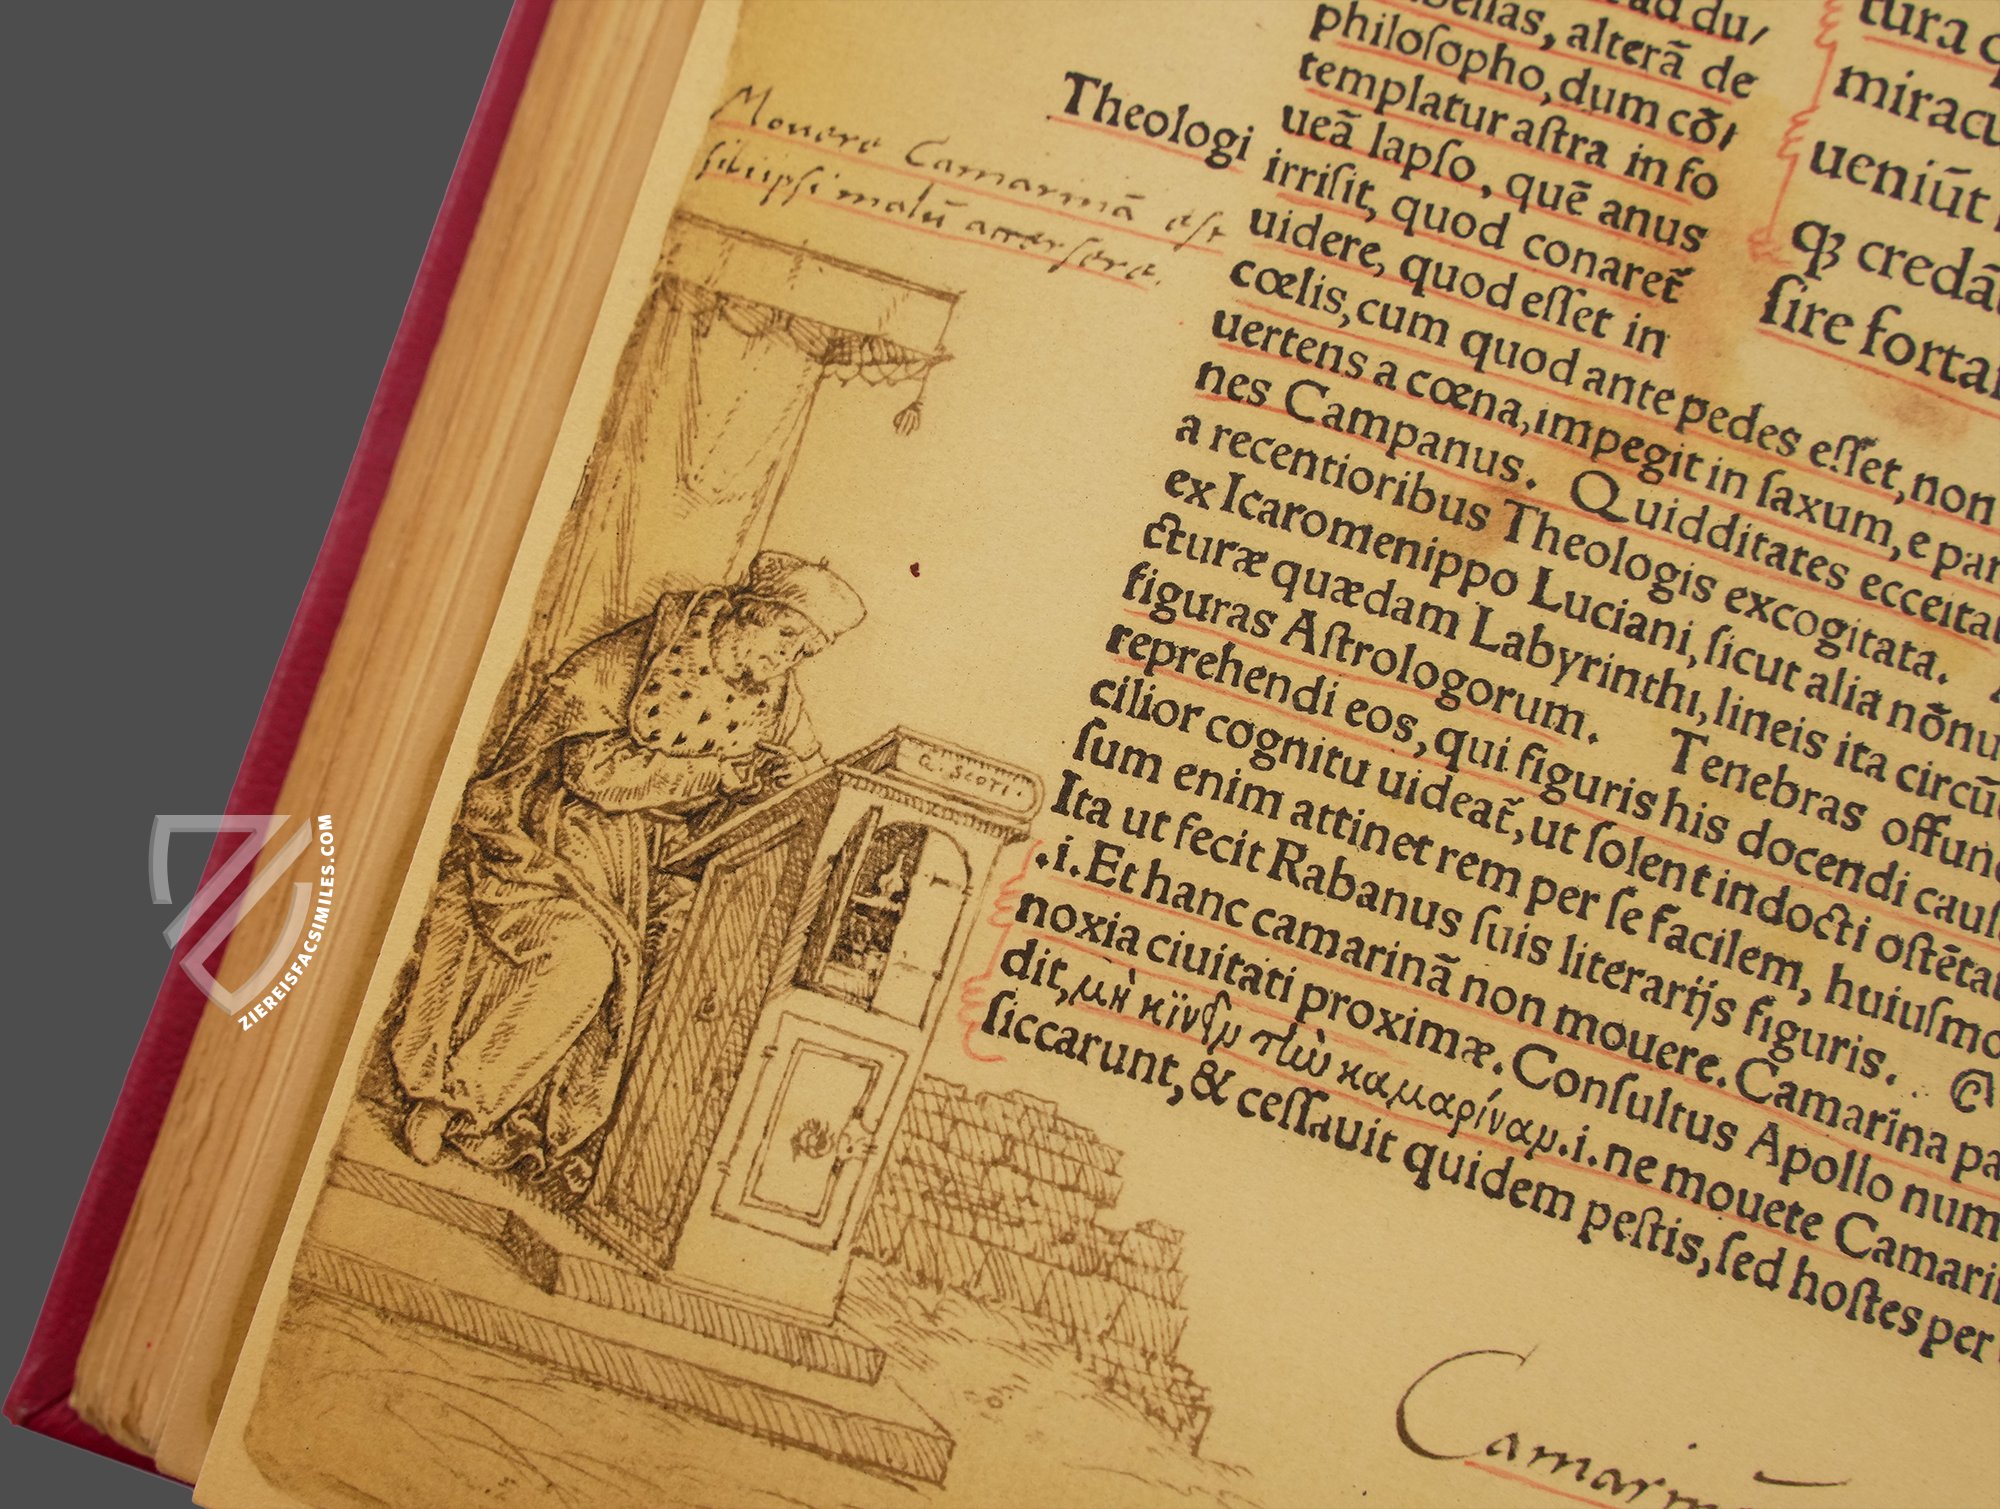 Mouere Camarinā est
sibiipsi malū arcersere.
Theologi
ad du/
bellas, alterā de
philoſopho, dum cō/
templatur aſtra in fo
ueā lapſo, quē anus
irriſit, quod conaret̃
uidere, quod eſſet in
cœlis, cum quod ante pedes eſſet, non
uertens a cœna, impegit in ſaxum, e par
nes Campanus. Quidditates ecceitat
a recentioribus Theologis excogitata.
ex Icaromenippo Luciani, ſicut alia nōnu
cturæ quædam Labyrinthi, lineis ita circū
figuras Aſtrologorum. Tenebras offun
reprehendi eos, qui figuris his docendi cauſ
cilior cognitu uideat̃, ut ſolent indocti oſtēta
ſum enim attinet rem per ſe facilem, huiuſmo
Ita ut fecit Rabanus ſuis literarijs figuris.
.i. Et hanc camarinā non mouere. Camarina pa
noxia ciuitati proximæ. Conſultus Apollo num
dit, μὴ κίνει τὴν καμαρίναν .i. ne mouete Camari
ſiccarunt, & ceſſauit quidem peſtis, ſed hoſtes per
tura q
miracu
ueniūt
qȝ credā
ſire fortaſ
G. SCOTI.
Camarin
ZIEREISFACSIMILES.COM